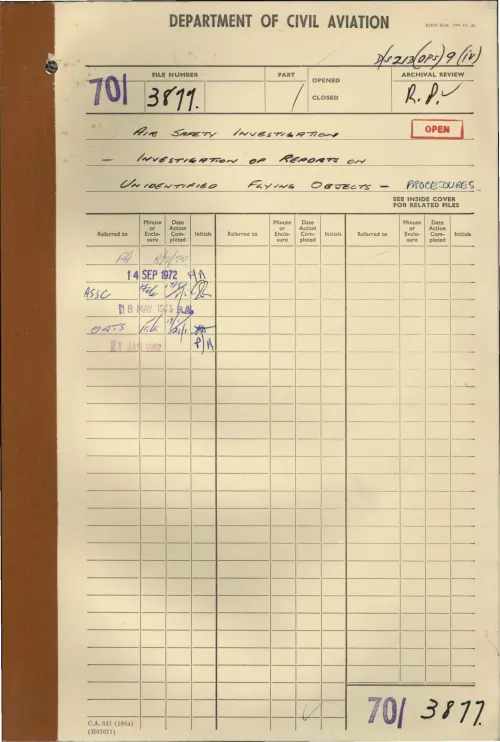 DEPARTMENT OF CIVIL AVIATION
D/S213(OPS)9(iv)
FILE NUMBER PART OPENED CLOSED ARCHIVAL REVIEW
70/ 3877. 1 R.P.
AIR SAFETY INVESTIGATION
OPEN
— INVESTIGATION OF REPORTS ON
UNIDENTIFIED FLYING OBJECTS — PROCEDURES
SEE INSIDE COVER
FOR RELATED FILES
Referred to Minute or Enclosure Date Action Completed Initials Referred to Minute or Enclosure Date Action Completed Initials Referred to Minute or Enclosure Date Action Completed Initials
PA
14 SEP 1972 P/A
ASSC File
18 MAY
OATS File
21 JAN 1982 P/A
70/ 3877.
C.A. 341 (1964)